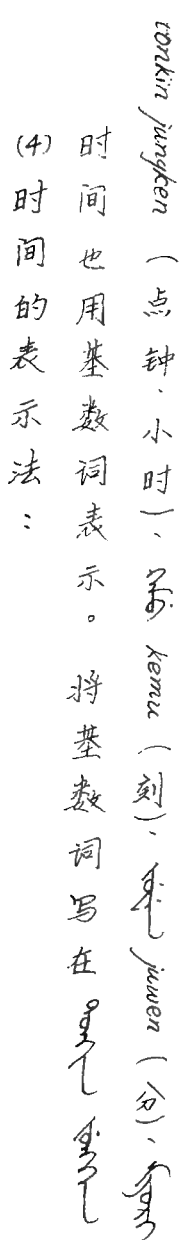 (4) 时间的表示法：
时间也用基数词表示。将基数词写在
jungken (点钟、小时)、 kemu (刻)、 juwen (分)、